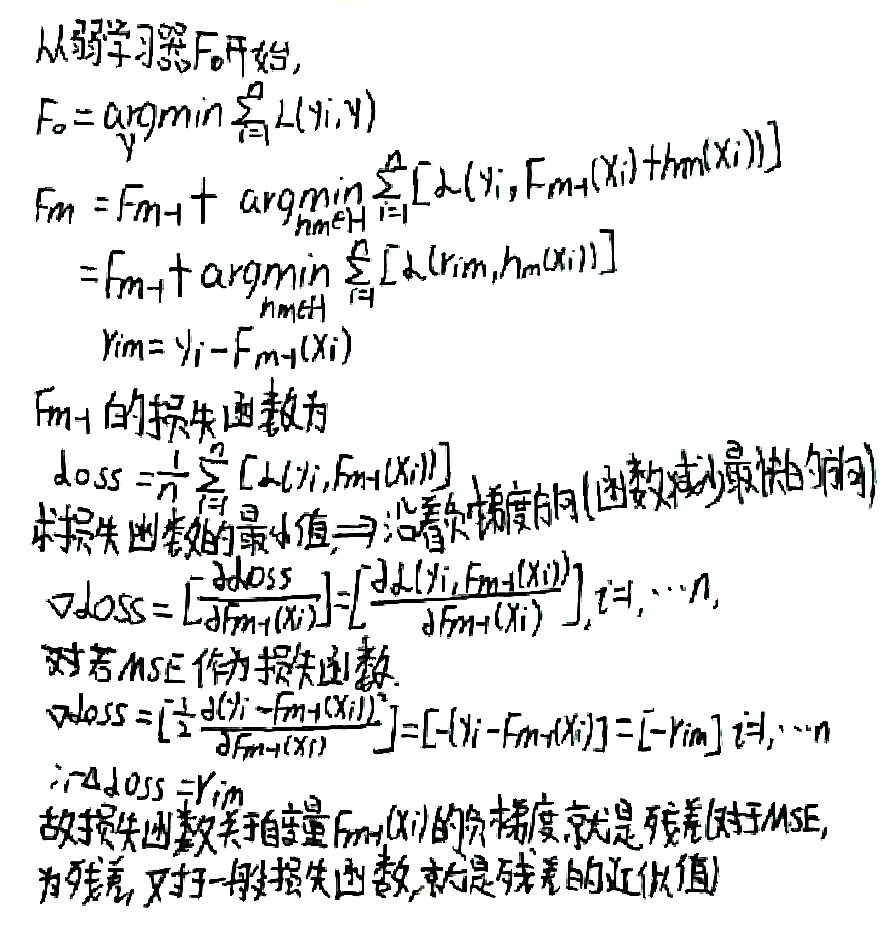 从弱学习器F₀开始,
F₀ = argmin_γ Σ_{i=1}^{n} L(yi, γ)
Fm = Fm-1 + argmin_{hm∈H} Σ_{i=1}^{n} [L(yi, Fm-1(xi)+hm(xi))]
= Fm-1 + argmin_{hm∈H} Σ_{i=1}^{n} [L(rim, hm(xi))]
rim = yi - Fm-1(xi)
Fm-1 的损失函数为
Loss = 1/n Σ_{i=1}^{n} [L(yi, Fm-1(xi))]
求损失函数的最小值, ⇒ 沿着负梯度方向(函数减少最快的方向)
∇Loss = [∂Loss/∂Fm-1(xi)] = [∂L(yi, Fm-1(xi))/∂Fm-1(xi)], i=1, ⋯n,
对若MSE作为损失函数.
∇Loss = [1/2 ∂(yi - Fm-1(xi))²/∂Fm-1(xi)] = [-(yi - Fm-1(xi)] = [-rim] i=1, ⋯n
∴ -ΔLoss = rim
故损失函数关于自变量Fm-1(xi)的负梯度就是残差(对于MSE,
为残差, 对于一般损失函数, 就是残差的近似值)